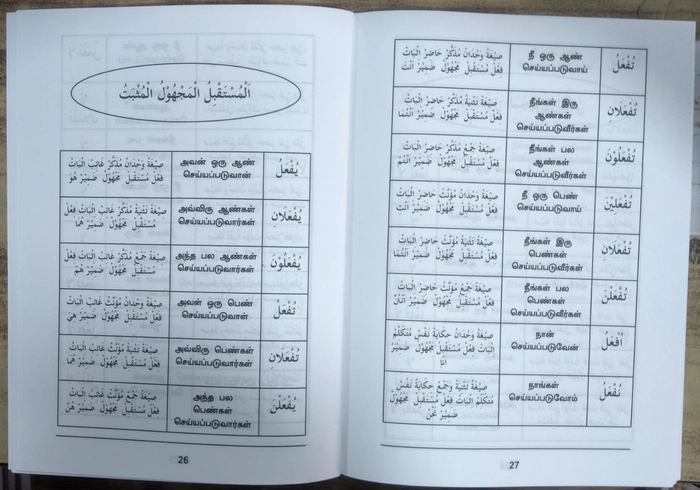 اَلْمُسْتَقْبِلُ الْمَجْهُوْلُ الْمُثْبَتُ
يُفْعَلُ
அவன் ஒரு ஆண்
செய்யப்படுவான்
صِيْغَةُ وَحْدَانْ مُذَكَّرْ غَائِبْ اِثْبَاتْ
فِعْلُ مُسْتَقْبِلْ مَجْهُوْلْ ضَمِيْرُ هُوَ
يُفْعَلَانِ
அவ்விரு ஆண்கள்
செய்யப்படுவார்கள்
صِيْغَةُ تَثْنِيَةْ مُذَكَّرْ غَائِبْ اِثْبَاتْ فِعْلُ
مُسْتَقْبِلْ مَجْهُوْلْ ضَمِيْرُ هُمَا
يُفْعَلُوْنَ
அந்த பல ஆண்கள்
செய்யப்படுவார்கள்
صِيْغَةُ جَمْعْ مُذَكَّرْ غَائِبْ اِثْبَاتْ فِعْلُ
مُسْتَقْبِلْ مَجْهُوْلْ ضَمِيْرُ هُمْ
تُفْعَلُ
அவள் ஒரு பெண்
செய்யப்படுவாள்
صِيْغَةُ وَحْدَانْ مُؤَنَّثْ غَائِبْ اِثْبَاتْ
فِعْلُ مُسْتَقْبِلْ مَجْهُوْلْ ضَمِيْرُ هِيَ
تُفْعَلَانِ
அவ்விரு பெண்கள்
செய்யப்படுவார்கள்
صِيْغَةُ تَثْنِيَةْ مُؤَنَّثْ غَائِبْ اِثْبَاتْ
فِعْلُ مُسْتَقْبِلْ مَجْهُوْلْ ضَمِيْرُ هُمَا
يُفْعَلْنَ
அந்த பல
பெண்கள்
செய்யப்படுவார்கள்
صِيْغَةُ جَمْعْ مُؤَنَّثْ غَائِبْ اِثْبَاتْ
فِعْلُ مُسْتَقْبِلْ مَجْهُوْلْ ضَمِيْرُ هُنَّ
26
تُفْعَلُ
நீ ஒரு ஆண்
செய்யப்படுவாய்
صِيْغَةُ وَحْدَانْ مُذَكَّرْ حَاضِرْ اِثْبَاتْ
فِعْلُ مُسْتَقْبِلْ مَجْهُوْلْ ضَمِيْرُ اَنْتَ
تُفْعَلَانِ
நீங்கள் இரு
ஆண்கள்
செய்யப்படுவீர்கள்
صِيْغَةُ تَثْنِيَةْ مُذَكَّرْ حَاضِرْ اِثْبَاتْ
فِعْلُ مُسْتَقْبِلْ مَجْهُوْلْ ضَمِيْرُ اَنْتُمَا
تُفْعَلُوْنَ
நீங்கள் பல
ஆண்கள்
செய்யப்படுவீர்கள்
صِيْغَةُ جَمْعْ مُذَكَّرْ حَاضِرْ اِثْبَاتْ
فِعْلُ مُسْتَقْبِلْ مَجْهُوْلْ ضَمِيْرُ اَنْتُمْ
تُفْعَلِيْنَ
நீ ஒரு பெண்
செய்யப்படுவாய்
صِيْغَةُ وَحْدَانْ مُؤَنَّثْ حَاضِرْ اِثْبَاتْ
فِعْلُ مُسْتَقْبِلْ مَجْهُوْلْ ضَمِيْرُ اَنْتِ
تُفْعَلَانِ
நீங்கள் இரு
பெண்கள்
செய்யப்படுவீர்கள்
صِيْغَةُ تَثْنِيَةْ مُؤَنَّثْ حَاضِرْ اِثْبَاتْ
فِعْلُ مُسْتَقْبِلْ مَجْهُوْلْ ضَمِيْرُ اَنْتُمَا
تُفْعَلْنَ
நீங்கள் பல
பெண்கள்
செய்யப்படுவீர்கள்
صِيْغَةُ جَمْعْ مُؤَنَّثْ حَاضِرْ اِثْبَاتْ
فِعْلُ مُسْتَقْبِلْ مَجْهُوْلْ ضَمِيْرُ اَنْتُنَّ
اُفْعَلُ
நான்
செய்யப்படுவேன்
صِيْغَةُ وَحْدَانْ حِكَايَةُ نَفْسِ مُتَكَلِّمْ
اِثْبَاتْ فِعْلُ مُسْتَقْبِلْ مَجْهُوْلْ ضَمِيْرُ
اَنَا
نُفْعَلُ
நாங்கள்
செய்யப்படுவோம்
صِيْغَةُ تَثْنِيَةْ وَجَمْعْ حِكَايَةُ نَفْسِ
مُتَكَلِّمْ اِثْبَاتْ فِعْلُ مُسْتَقْبِلْ مَجْهُوْلْ
ضَمِيْرُ نَحْنُ
27